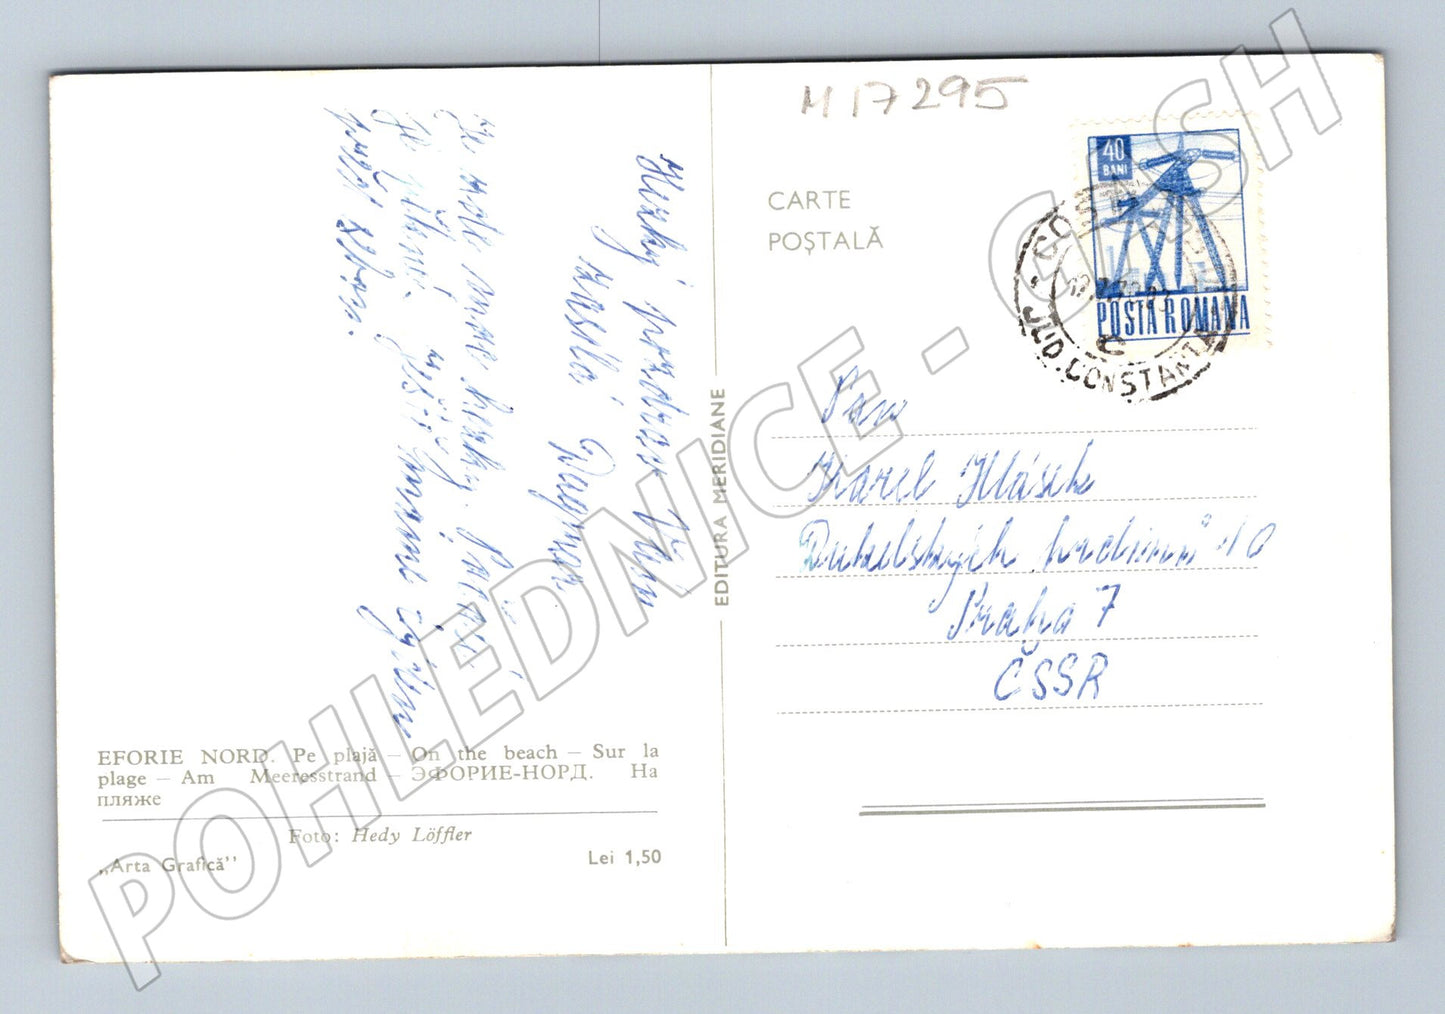 M 17295
CARTE
POȘTALĂ
40
BANI
POSTA ROMANA
JUD. CONSTANȚA
Hezký pozdrav Vám
zasílá
Dagmar.
Je zde moc hezky. Počasí
je pěkné.
EDITURA MERIDIANE
Pan
Karel Hlásek
Dukelských hrdinů 40
Praha 7
ČSSR
EFORIE NORD. Pe plajă – On the beach – Sur la
plage – Am Meeresstrand – ЭФОРИЕ-НОРД. На
пляже
Foto: Hedy Löffler
„Arta Grafică”
Lei 1,50
POHLEDNICE - CASH